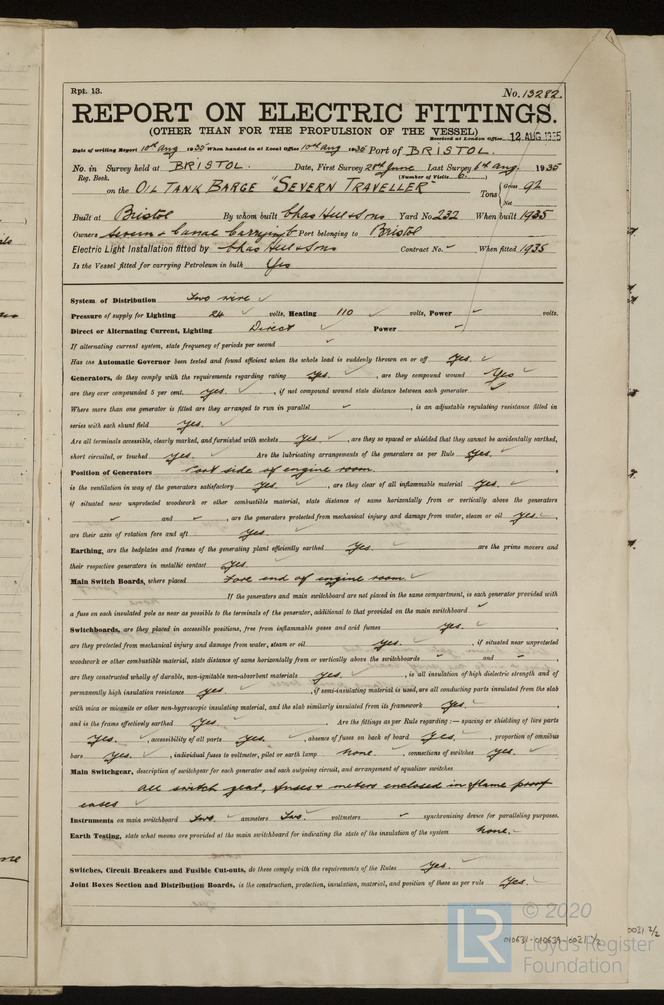 Rpt. 13. No. 13282.
REPORT ON ELECTRIC FITTINGS.
(OTHER THAN FOR THE PROPULSION OF THE VESSEL)
Received at London Office 12 AUG 1935
Date of writing Report 10th Aug 1935 When handed in at Local Office 10th Aug 1935 Port of BRISTOL.
No. in Survey held at BRISTOL. Date, First Survey 28th June Last Survey 6th Aug. 1935
Reg. Book. (Number of Visits 6.)
on the OIL TANK BARGE "SEVERN TRAVELLER" Tons { Gross 92
Net
Built at Bristol By whom built Chas Hill & Sons Yard No. 232 When built 1935
Owners Severn & Canal Carrying Port belonging to Bristol
Electric Light Installation fitted by Chas Hill & Sons Contract No. - When fitted 1935
Is the Vessel fitted for carrying Petroleum in bulk Yes
System of Distribution Two wire ✓
Pressure of supply for Lighting 24 ✓ volts, Heating 110 ✓ volts, Power - volts.
Direct or Alternating Current, Lighting Direct ✓ Power -
If alternating current system, state frequency of periods per second ✓
Has the Automatic Governor been tested and found efficient when the whole load is suddenly thrown on or off Yes. ✓
Generators, do they comply with the requirements regarding rating Yes. ✓, are they compound wound Yes ✓
are they over compounded 5 per cent. Yes. ✓, if not compound wound state distance between each generator ✓
Where more than one generator is fitted are they arranged to run in parallel -, is an adjustable regulating resistance fitted in
series with each shunt field Yes. ✓
Are all terminals accessible, clearly marked, and furnished with sockets Yes. ✓, are they so spaced or shielded that they cannot be accidentally earthed,
short circuited, or touched Yes. ✓ Are the lubricating arrangements of the generators as per Rule Yes. ✓
Position of Generators Port side of engine room.
is the ventilation in way of the generators satisfactory Yes. ✓, are they clear of all inflammable material Yes. ✓
if situated near unprotected woodwork or other combustible material, state distance of same horizontally from or vertically above the generators
- and -, are the generators protected from mechanical injury and damage from water, steam or oil Yes. ✓
are their axes of rotation fore and aft Yes. ✓
Earthing, are the bedplates and frames of the generating plant efficiently earthed Yes. ✓ are the prime movers and
their respective generators in metallic contact Yes. ✓
Main Switch Boards, where placed Fore end of engine room. ✓
If the generators and main switchboard are not placed in the same compartment, is each generator provided with
a fuse on each insulated pole as near as possible to the terminals of the generator, additional to that provided on the main switchboard ✓
Switchboards, are they placed in accessible positions, free from inflammable gases and acid fumes Yes. ✓
are they protected from mechanical injury and damage from water, steam or oil Yes. ✓, if situated near unprotected
woodwork or other combustible material, state distance of same horizontally from or vertically above the switchboards - and -,
are they constructed wholly of durable, non-ignitable non-absorbent materials Yes. ✓, is all insulation of high dielectric strength and of
permanently high insulation resistance Yes. ✓, if semi-insulating material is used, are all conducting parts insulated from the slab
with mica or micanite or other non-hygroscopic insulating material, and the slab similarly insulated from its framework Yes. ✓,
and is the frame effectively earthed Yes. ✓ Are the fittings as per Rule regarding :— spacing or shielding of live parts
Yes. ✓, accessibility of all parts Yes. ✓, absence of fuses on back of board Yes. ✓, proportion of omnibus
bars Yes. ✓, individual fuses to voltmeter, pilot or earth lamp None. ✓, connections of switches Yes. ✓
Main Switchgear, description of switchgear for each generator and each outgoing circuit, and arrangement of equalizer switches
All switch gear, fuses & meters enclosed in flame proof
cases ✓
Instruments on main switchboard Two. ✓ ammeters Two. ✓ voltmeters - synchronising device for paralleling purposes.
Earth Testing, state what means are provided at the main switchboard for indicating the state of the insulation of the system None. ✓
Switches, Circuit Breakers and Fusible Cut-outs, do these comply with the requirements of the Rules Yes. ✓
Joint Boxes Section and Distribution Boards, is the construction, protection, insulation, material, and position of these as per rule Yes. ✓
© 2020
LR Lloyd's Register
Foundation
010631-010639-0021 1/2
0021 2/2